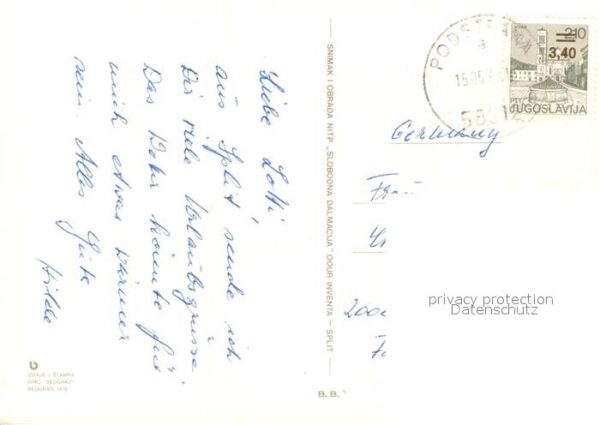 Liebe Lotti,
aus Split sende ich
Dir viele Urlaubsgrüsse.
Das Wetter könnte für
mich etwas wärmer
sein. Alles Gute
Hilde
SNIMAK I OBRADA NITP „SLOBODNA DALMACIJA" OOUR INVENTA – SPLIT
IZDAJE I ŠTAMPA
BEOGRAD, 1978
B. B.
PODSTRANA
a
15.05.
2.10
3,40
PTT
JUGOSLAVIJA
Germany
Frau
2000
privacy protection
Datenschutz